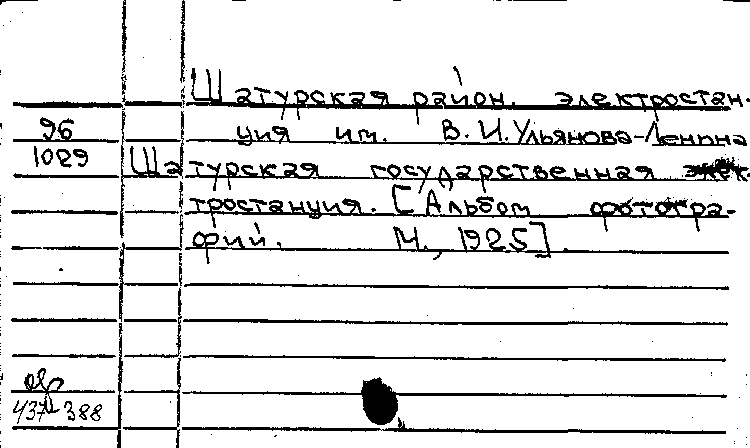 Шатурская район. электростан-
96 ция им. В. И. Ульянова-Ленина
1029 Шатурская государственная элек-
тростанция. [Альбом фотогра-
фий. М., 1925].
388